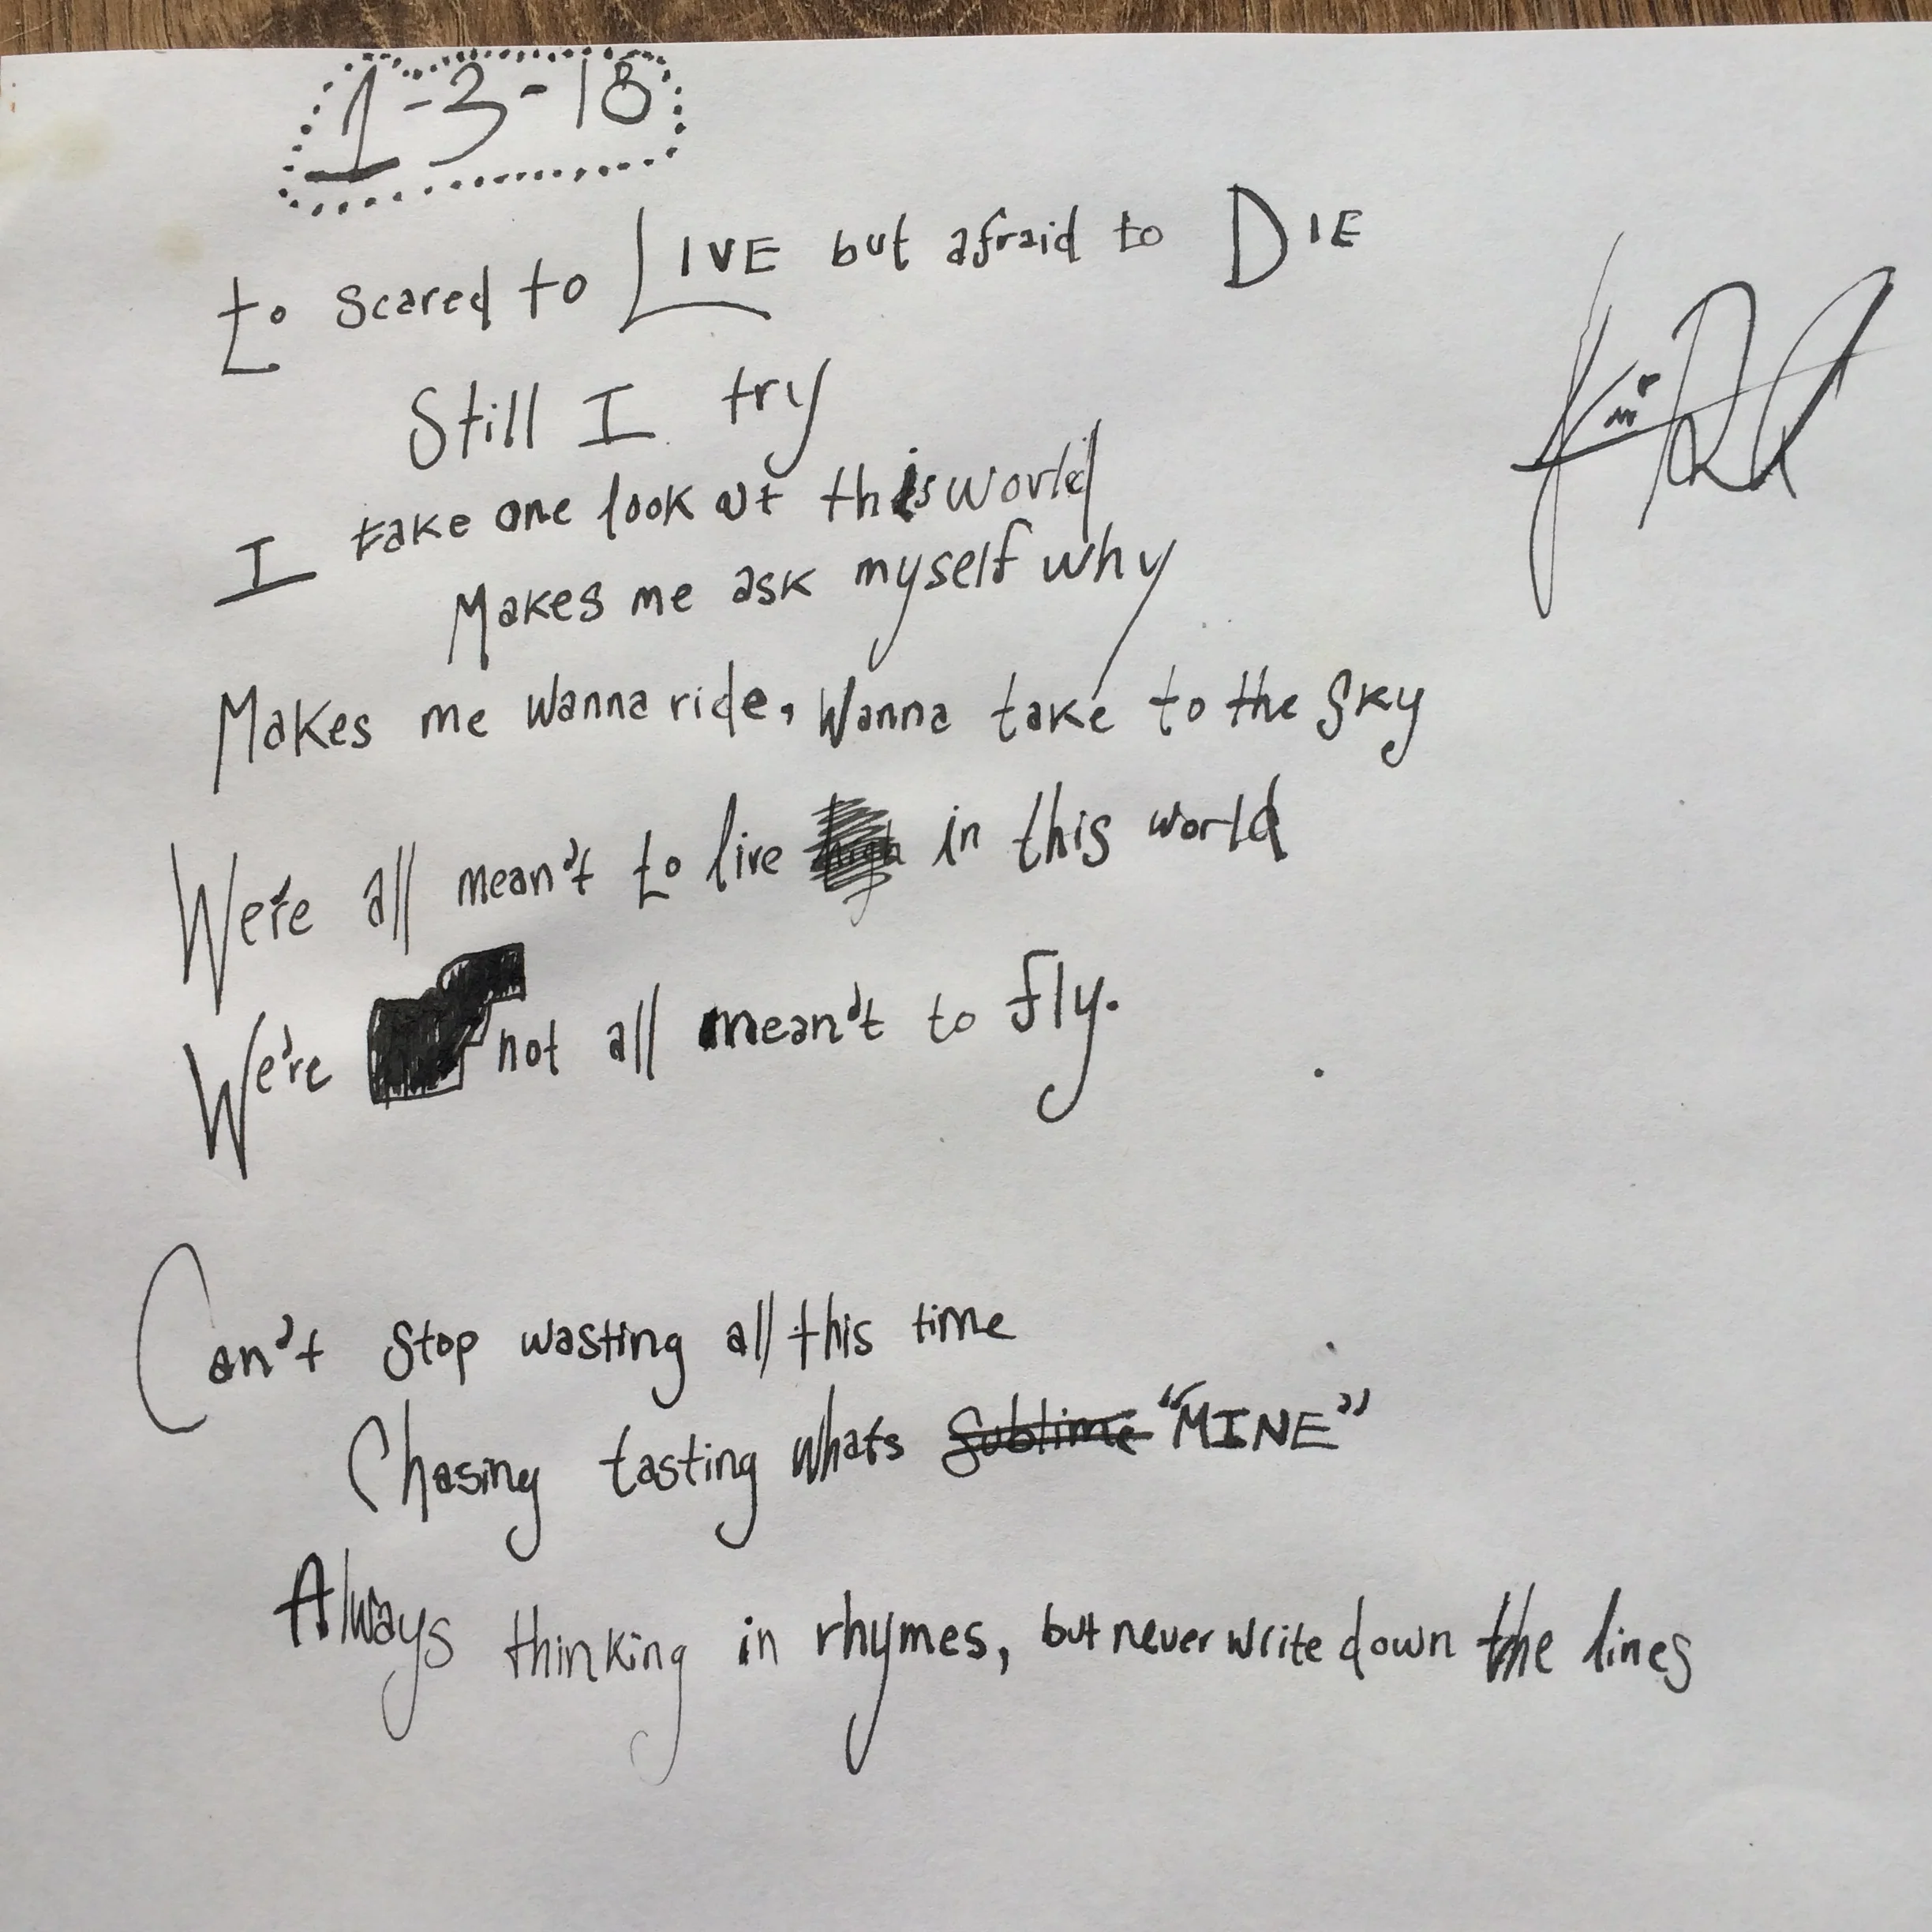 1-3-18
to scared to LIVE but afraid to DIE
Still I try
I take one look at this world
Makes me ask myself why
Makes me wanna ride, Wanna take to the sky
We're all mean't to live in this world
We're not all mean't to fly.
Can't stop wasting all this time
Chasing tasting whats sublime "MINE"
Always thinking in rhymes, but never write down the lines